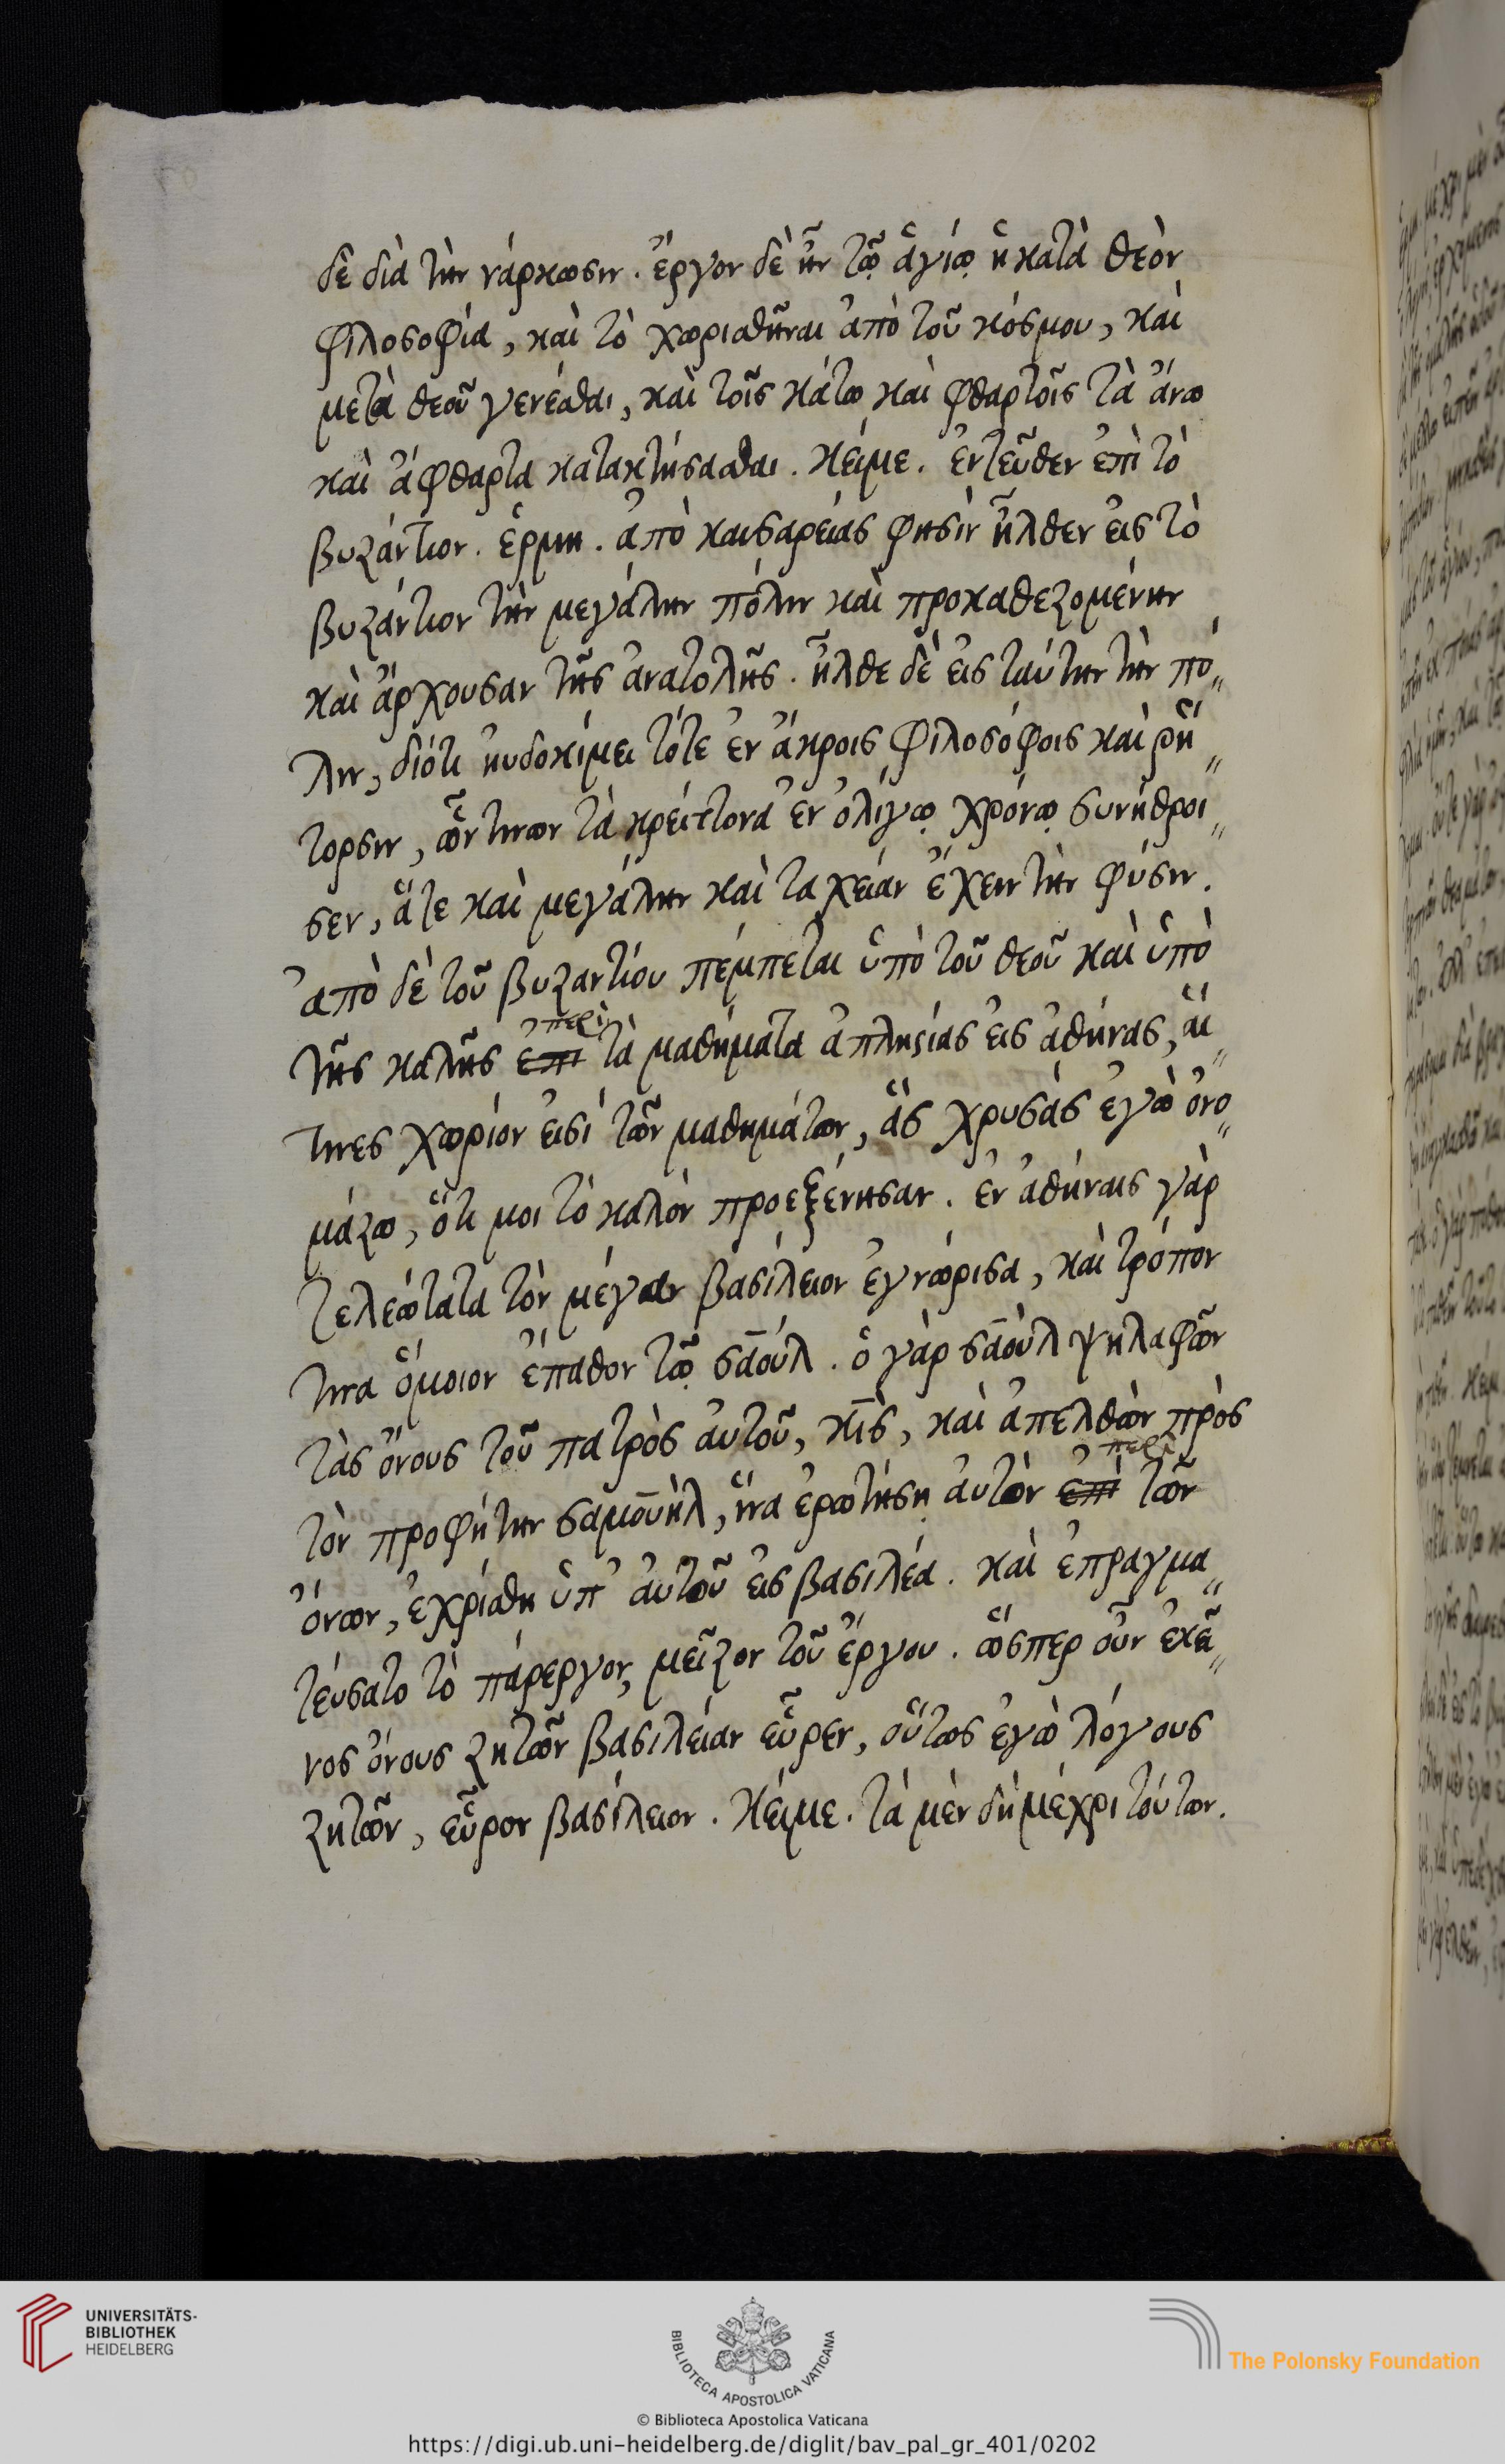 δὲ διὰ τὴν νάρκωσιν. ἔργον δὲ ἦν τῷ ἁγίῳ ἡ κατὰ θεὸν
φιλοσοφία, καὶ τὸ χωρισθῆναι ἀπὸ τοῦ κόσμου, καὶ
μετὰ θεοῦ γενέσθαι, καὶ τοῖς κάτω καὶ φθαρτοῖς τὰ ἄνω
καὶ ἄφθαρτα κατακτήσασθαι. Κείμε. ἐντεῦθεν ἐπὶ τὸ
βυζάντιον. ἑρμη. ἀπὸ καισαρείας φησὶν ἦλθεν εἰς τὸ
βυζάντιον τὴν μεγάλην πόλιν καὶ προκαθεζομένην
καὶ ἄρχουσαν τῆς ἀνατολῆς. ἦλθε δὲ εἰς ταύτην τὴν πό„
λιν, διότι ηὐδοκίμει τότε ἐν ἄκροις φιλοσόφοις καὶ ῥή„
τορσιν, ὧν τινων τὰ κρείττονα ἐν ὀλίγῳ χρόνῳ συνήθροι„
σεν, ἅτε καὶ μεγάλην καὶ ταχεῖαν ἔχειν τὴν φύσιν.
ἀπὸ δὲ τοῦ βυζαντίου πέμπεται ὑπὸ τοῦ θεοῦ καὶ ὑπὸ
περὶ
τῆς καλῆς ἐπι τὰ μαθήματα ἀπληστίας εἰς ἀθήνας, αἵ„
τινες χωρίον εἰσὶ τῶν μαθημάτων, ἃς χρυσᾶς ἐγὼ ὀνο„
μάζω, ὅτι μοι τὸ καλὸν προεξένησαν. ἐν ἀθήναις γὰρ
τελεώτατα τὸν μέγαν βασίλειον ἐγνώρισα, καὶ τρόπον
τινα ὅμοιον ἔπαθον τῷ σαούλ. ὁ γὰρ σαοὺλ ψηλαφῶν
τὰς ὄνους τοῦ πατρὸς αὐτοῦ, κὶς, καὶ ἀπελθὼν πρὸς
περὶ
τὸν προφήτην σαμουὴλ, ἵνα ἐρωτήσῃ αὐτὸν ἐπὶ τῶν
ὄνων, ἐχρίσθη ὑπ' αὐτοῦ εἰς βασιλέα. καὶ ἐπραγμα„
τεύσατο τὸ πάρεργον, μεῖζον τοῦ ἔργου. ὥσπερ οὖν ἐκεῖ„
νος ὄνους ζητῶν βασιλείαν εὗρεν, οὕτως ἐγὼ λόγους
ζητῶν, εὗρον βασίλειον. Κείμε. τὰ μὲν δὴ μέχρι τούτων.
UNIVERSITÄTS-
BIBLIOTHEK
HEIDELBERG
BIBLIOTECA APOSTOLICA VATICANA
The Polonsky Foundation
© Biblioteca Apostolica Vaticana
https://digi.ub.uni-heidelberg.de/diglit/bav_pal_gr_401/0202